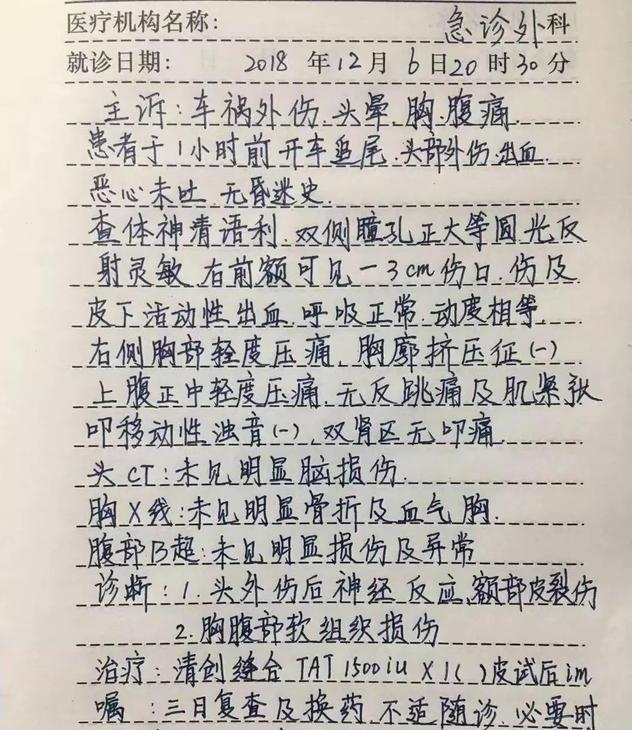 医疗机构名称: 急诊外科
就诊日期: 2018 年 12 月 6 日 20 时 30 分
主诉:车祸外伤.头晕.胸.腹痛.
患者于1小时前开车追尾.头部外伤.出血.
恶心未吐.无昏迷史.
查体神清语利.双侧瞳孔正大等圆光反
射灵敏.右前额可见一3cm伤口.伤及
皮下活动性出血.呼吸正常.动度相等.
右侧胸部轻度压痛.胸廓挤压征(-)
上腹正中轻度压痛.无反跳痛及肌紧张
叩移动性浊音(-).双肾区无叩痛.
头CT:未见明显脑损伤.
胸X线:未见明显骨折及血气胸.
腹部B超:未见明显损伤及异常
诊断:1.头外伤后神经反应.额部皮裂伤
2.胸腹部软组织损伤
治疗:清创缝合 TAT 1500iu X1( )皮试后im
嘱:三日复查及换药.不适随诊.必要时